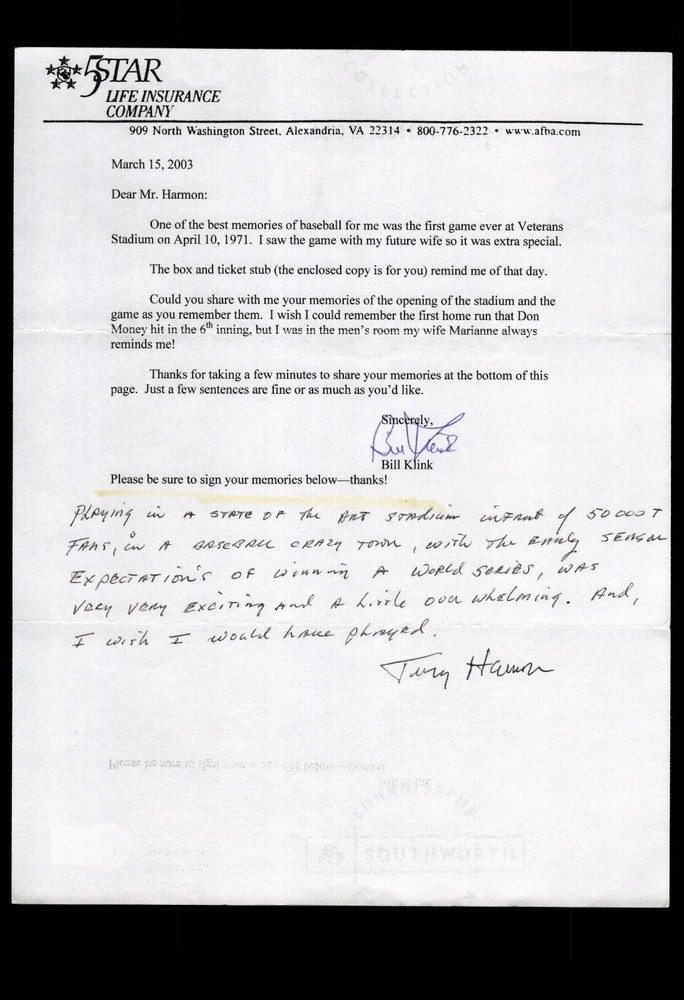 5STAR
LIFE INSURANCE
COMPANY
909 North Washington Street, Alexandria, VA 22314 • 800-776-2322 • www.afba.com
March 15, 2003
Dear Mr. Harmon:
One of the best memories of baseball for me was the first game ever at Veterans
Stadium on April 10, 1971. I saw the game with my future wife so it was extra special.
The box and ticket stub (the enclosed copy is for you) remind me of that day.
Could you share with me your memories of the opening of the stadium and the
game as you remember them. I wish I could remember the first home run that Don
Money hit in the 6th inning, but I was in the men's room my wife Marianne always
reminds me!
Thanks for taking a few minutes to share your memories at the bottom of this
page. Just a few sentences are fine or as much as you'd like.
Sincerely,
Bill Klink
Bill Klink
Please be sure to sign your memories below—thanks!
Playing in A STATE OF the Art Stadium infront of 50 000 +
FANS, in A BASEBALL CRAZY TOWN, with The Early SEASON
EXPECTATION'S OF winning A World SERIES, WAS
Very Very Exciting And A Little over whelming. And,
I wish I would have played.
Terry Harmon
Please be sure to sign your memories below—thanks!
SOUTHWORTH